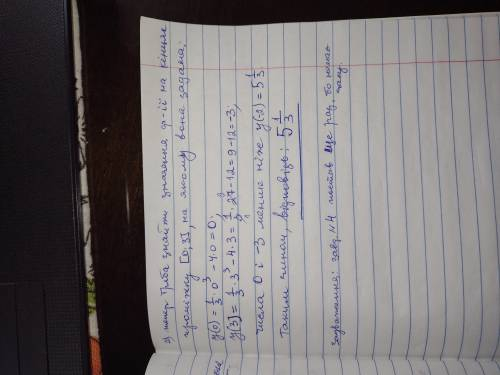 3) тепер треба знайти значення ф-ії на кінцях
проміжку [0;3], на якому вона задана:
y(0) = 1/3 · 0³ - 4·0 = 0;
y(3) = 1/3 · 3³ - 4·3 = 1/3 · 27 - 12 = 9 - 12 = -3;
числа 0 і -3 менше ніж y(-2) = 5 1/3
Таким чином, відповідь: 5 1/3
зауваження: завд. №4 постав ще раз, бо мало